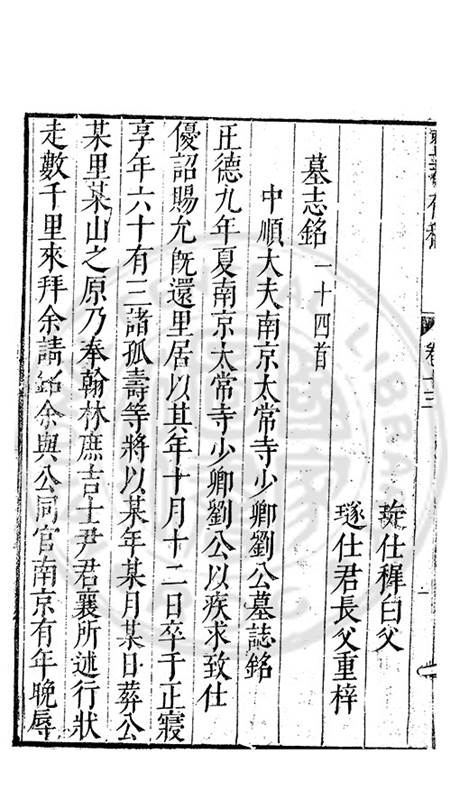 存稿 卷十三
仕穉白父
璲仕君長父重梓
墓志銘一十四首
中順大夫南京太常寺少卿劉公墓誌銘
正德九年夏南京太常寺少卿劉公以疾求致仕
優詔賜允既還里居以其年十月十二日卒于正寢
享年六十有三諸孤壽等將以某年某月某日葬公
某里某山之原乃奉翰林庶吉士尹君襄所述行狀
走數千里來拜余請銘余與公同官南京有年晚辱